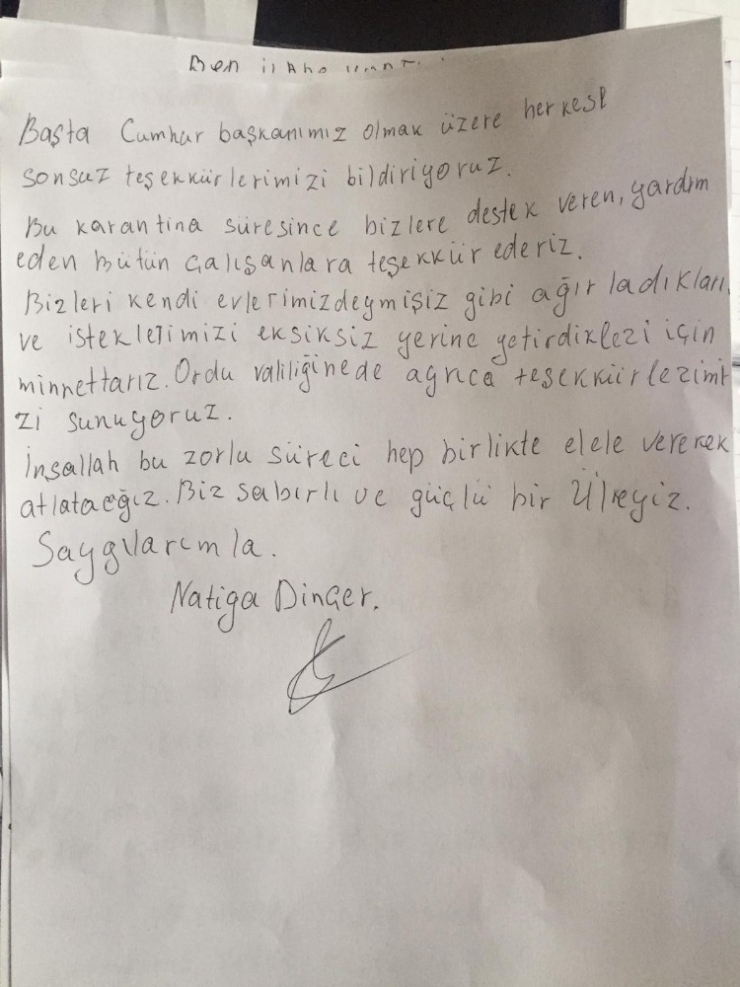 Ben
Başta Cumhur başkanımız olmak üzere herkese
sonsuz teşekkürlerimizi bildiriyoruz.
Bu karantina süresince bizlere destek veren, yardım
eden bütün çalışanlara teşekkür ederiz.
Bizleri kendi evlerimizdeymişiz gibi ağırladıkları
ve isteklerimizi eksiksiz yerine getirdikleri için
minnettarız. Ordu valiliğinede ayrıca teşekkürlerimi
zi sunuyoruz.
İnşallah bu zorlu süreci hep birlikte elele vererek
atlatacağız. Biz sabırlı ve güçlü bir Ülkeyiz.
Saygılarımla.
Natiga Dinçer.